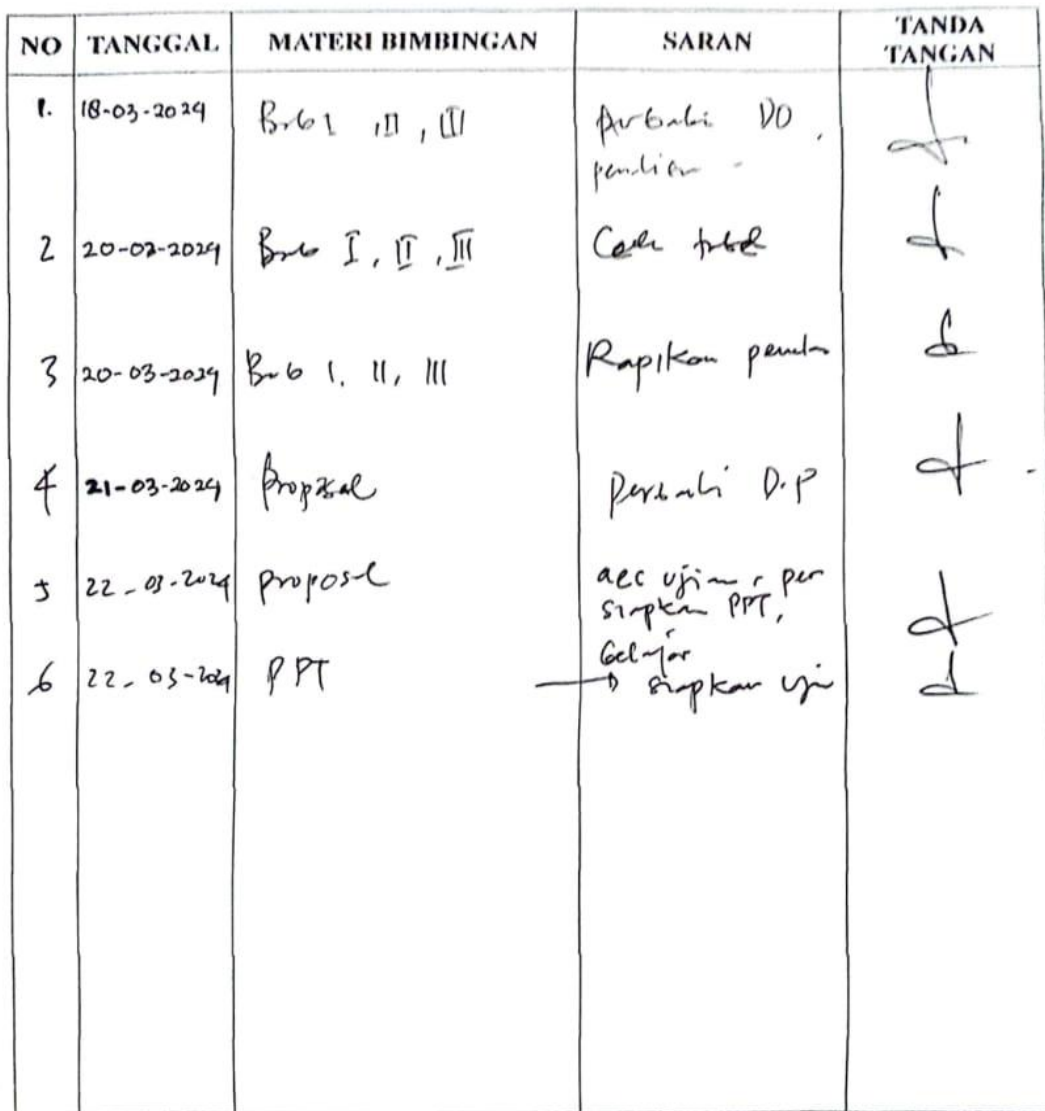 NO TANGGAL MATERI BIMBINGAN SARAN TANDA TANGAN
1. 18-03-2024 Bab I, II, III Perbaiki DO,
2 20-03-2024 Bab I, II, III Cek tabel
3 20-03-2024 Bab I, II, III Rapikan
4 21-03-2024 Proposal Perbaiki D.P
5 22-03-2024 proposal acc ujian, per
siapkan PPT,
belajar
6 22-03-2024 PPT siapkan uji